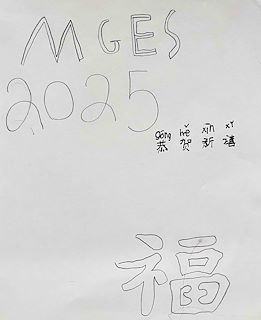 MGES
2025
gōng hè xīn xǐ
恭贺新禧
福